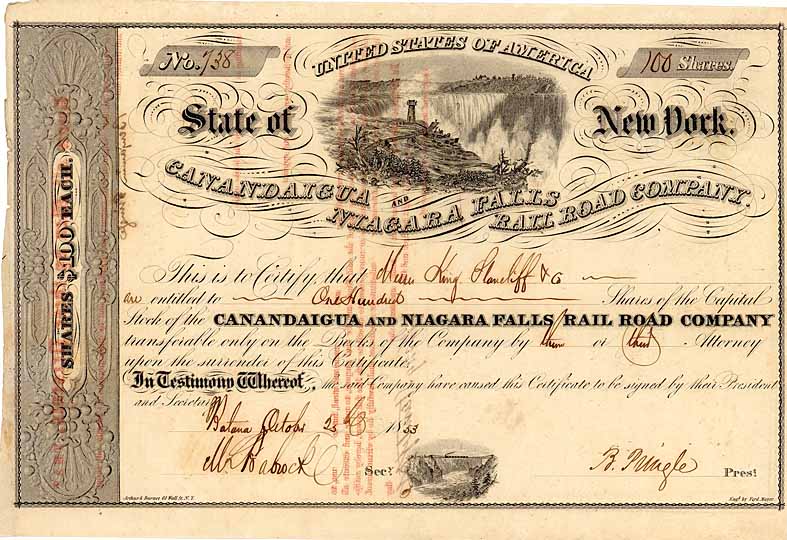 No. 738
100 Shares.
UNITED STATES OF AMERICA
State of New York.
CANANDAIGUA AND NIAGARA FALLS RAIL ROAD COMPANY.
SHARES $100 EACH.
This is to Certify, that Messrs King, & Co
are entitled to One Hundred Shares of the Capital
Stock of the CANANDAIGUA AND NIAGARA FALLS RAIL ROAD COMPANY
transferable only on the Books of the Company by them or their Attorney
upon the surrender of this Certificate.
In Testimony Whereof, the said Company have caused this Certificate to be signed by their President
and Secretary
Batavia October 1853
Babcock Secy.
B. Pringle Prest.
Arthur & Burnet 61 Wall St. N.Y.
Engd. by Ferd. Mayer